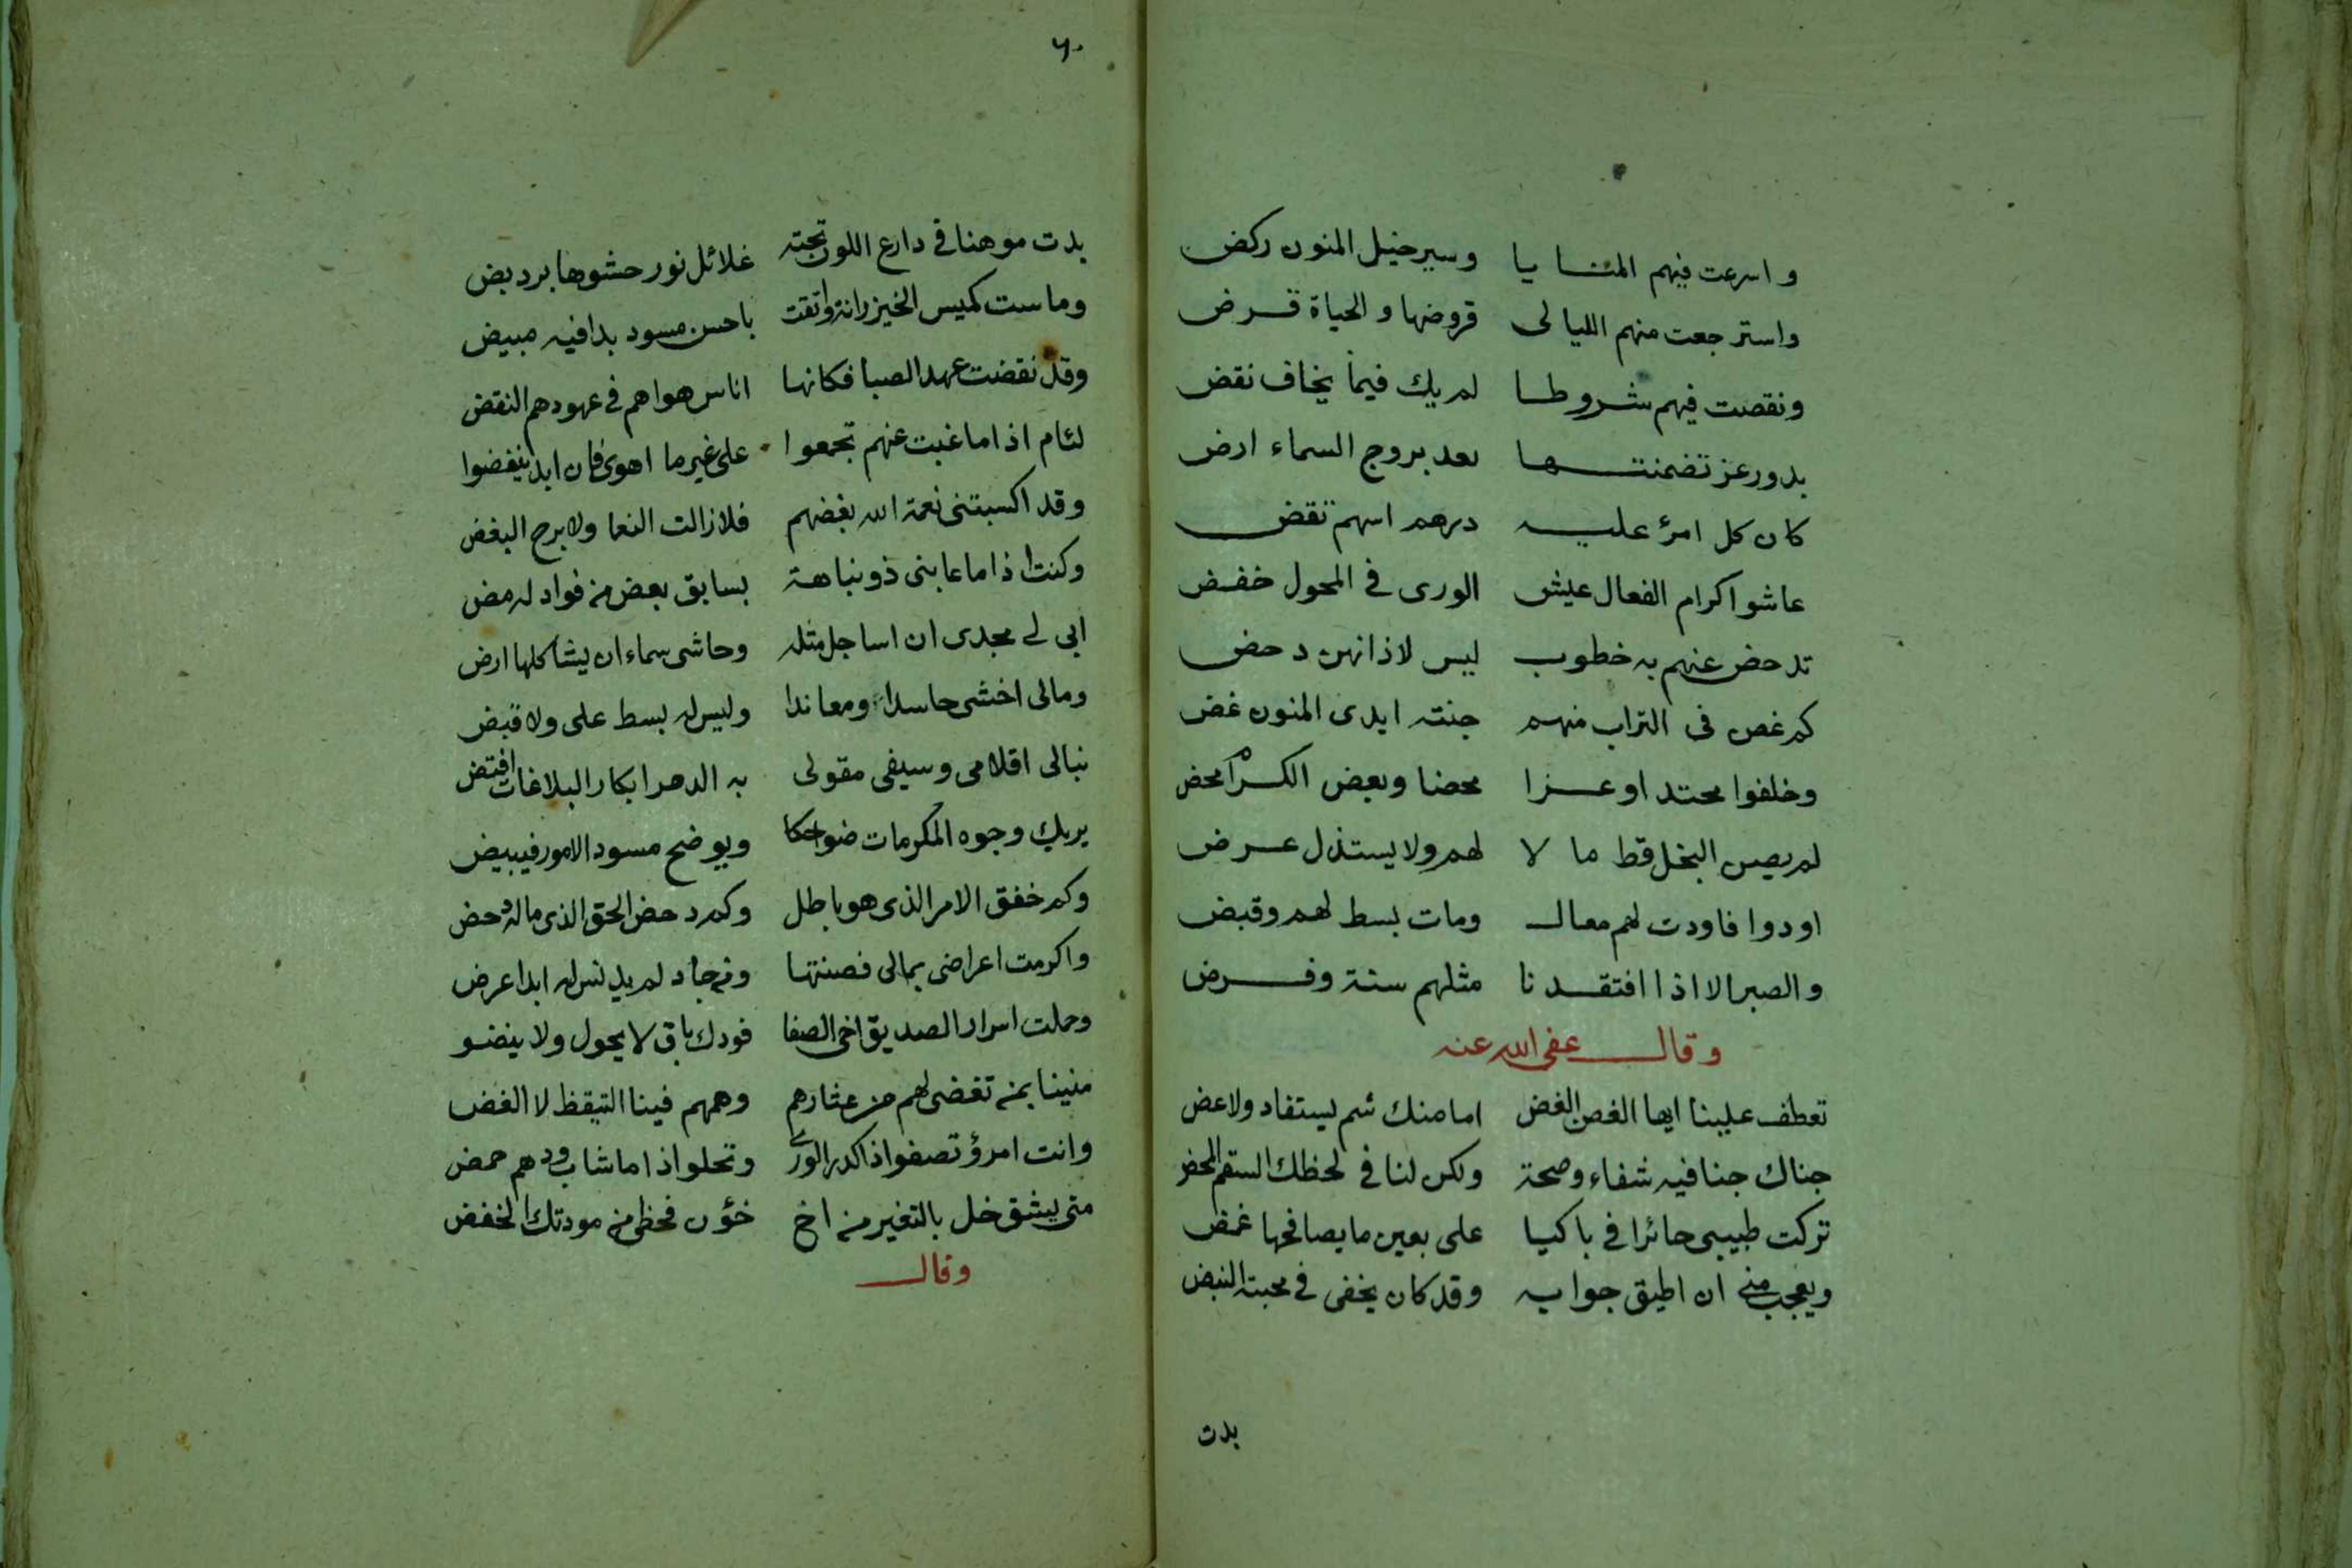 واسرعت فيهم المنايا وسير خيل المنون ركض
واسترجعت منهم الليالى قروضها والحياة قرض
ونقصت فيهم شروطا لم يك فيما يخاف نقض
بدور عز تضمنتها بعد بروج السماء ارض
كان كل امرئ عليه درهم اسهم تقض
عاشوا كرام الفعال عيش الورى في المحول خفض
تدحض عنهم به خطوب ليس لاذانهن دحض
كم غص فى التراب منهم جنته ايدى المنون غض
وخلفوا محتدا وعزا محضا وبعض الكرام محض
لم يصن البخل قط مالا لهم ولا يستذل عرض
اودوا فاودت لهم معال ومات بسط لهم وقبض
والصبر الا اذا افتقدنا مثلهم سنة وفرض
وقال عفى الله عنه
تعطف علينا ايها الغصن الغض اما منك شم يستفاد ولا عض
جناك جنا فيه شفاء وصحة ولكن لنا في لحظك السقم المحض
تركت طبيبى حائرا في باكيا على بعين ما يصافحها غمض
ويعجب مني ان اطيق جوابه وقد كان يخفى في محبته النبض
بدت
٦٠
بدت موهنا في دارع اللون تحته غلائل نور حشوها برد بض
وماست كميس الخيزرانة واتقت باحسن مسود بدا فيه مبيض
وقد نقضت عهد الصبا فكانها اناس هواهم في عهودهم النقض
لئام اذا ما غبت عنهم تجمعوا على غير ما اهوى فان ابد ينفضوا
وقد اكسبتنى نعمة الله بغضهم فلا زالت النعما ولا برح البغض
وكنت اذا ما عابنى ذو نباهة بسابق بعض من فواد له مض
ابى لے مجدى ان اساجل مثله وحاشى سماء ان يشاكلها ارض
ومالى اخشى حاسدا ومعاندا وليس له بسط على ولا قبض
نبالى اقلامى وسيفى مقولى به الدهر ابكار البلاغات افتض
يريك وجوه المكرمات ضواحكا ويوضح مسود الامور فيبيض
وكم خفق الامر الذى هو باطل وكم دحض الحق الذى ماله دحض
واكرمت اعراضى بمالى فصنتها ومن جاد لم يدنس له ابدا عرض
وحملت اسرار الصديق اخى الصفا فودك باق لا يحول ولا ينضو
منينا بمن تغضى لهم من عثارهم وهمهم فينا التيقظ لا الغض
وانت امرؤ تصفو اذا كدر الورى وتحلو اذا ما شاب ودهم حمض
متى يشق خل بالتغير من اخ خؤن فحظى من مودتك الخفض
وقال